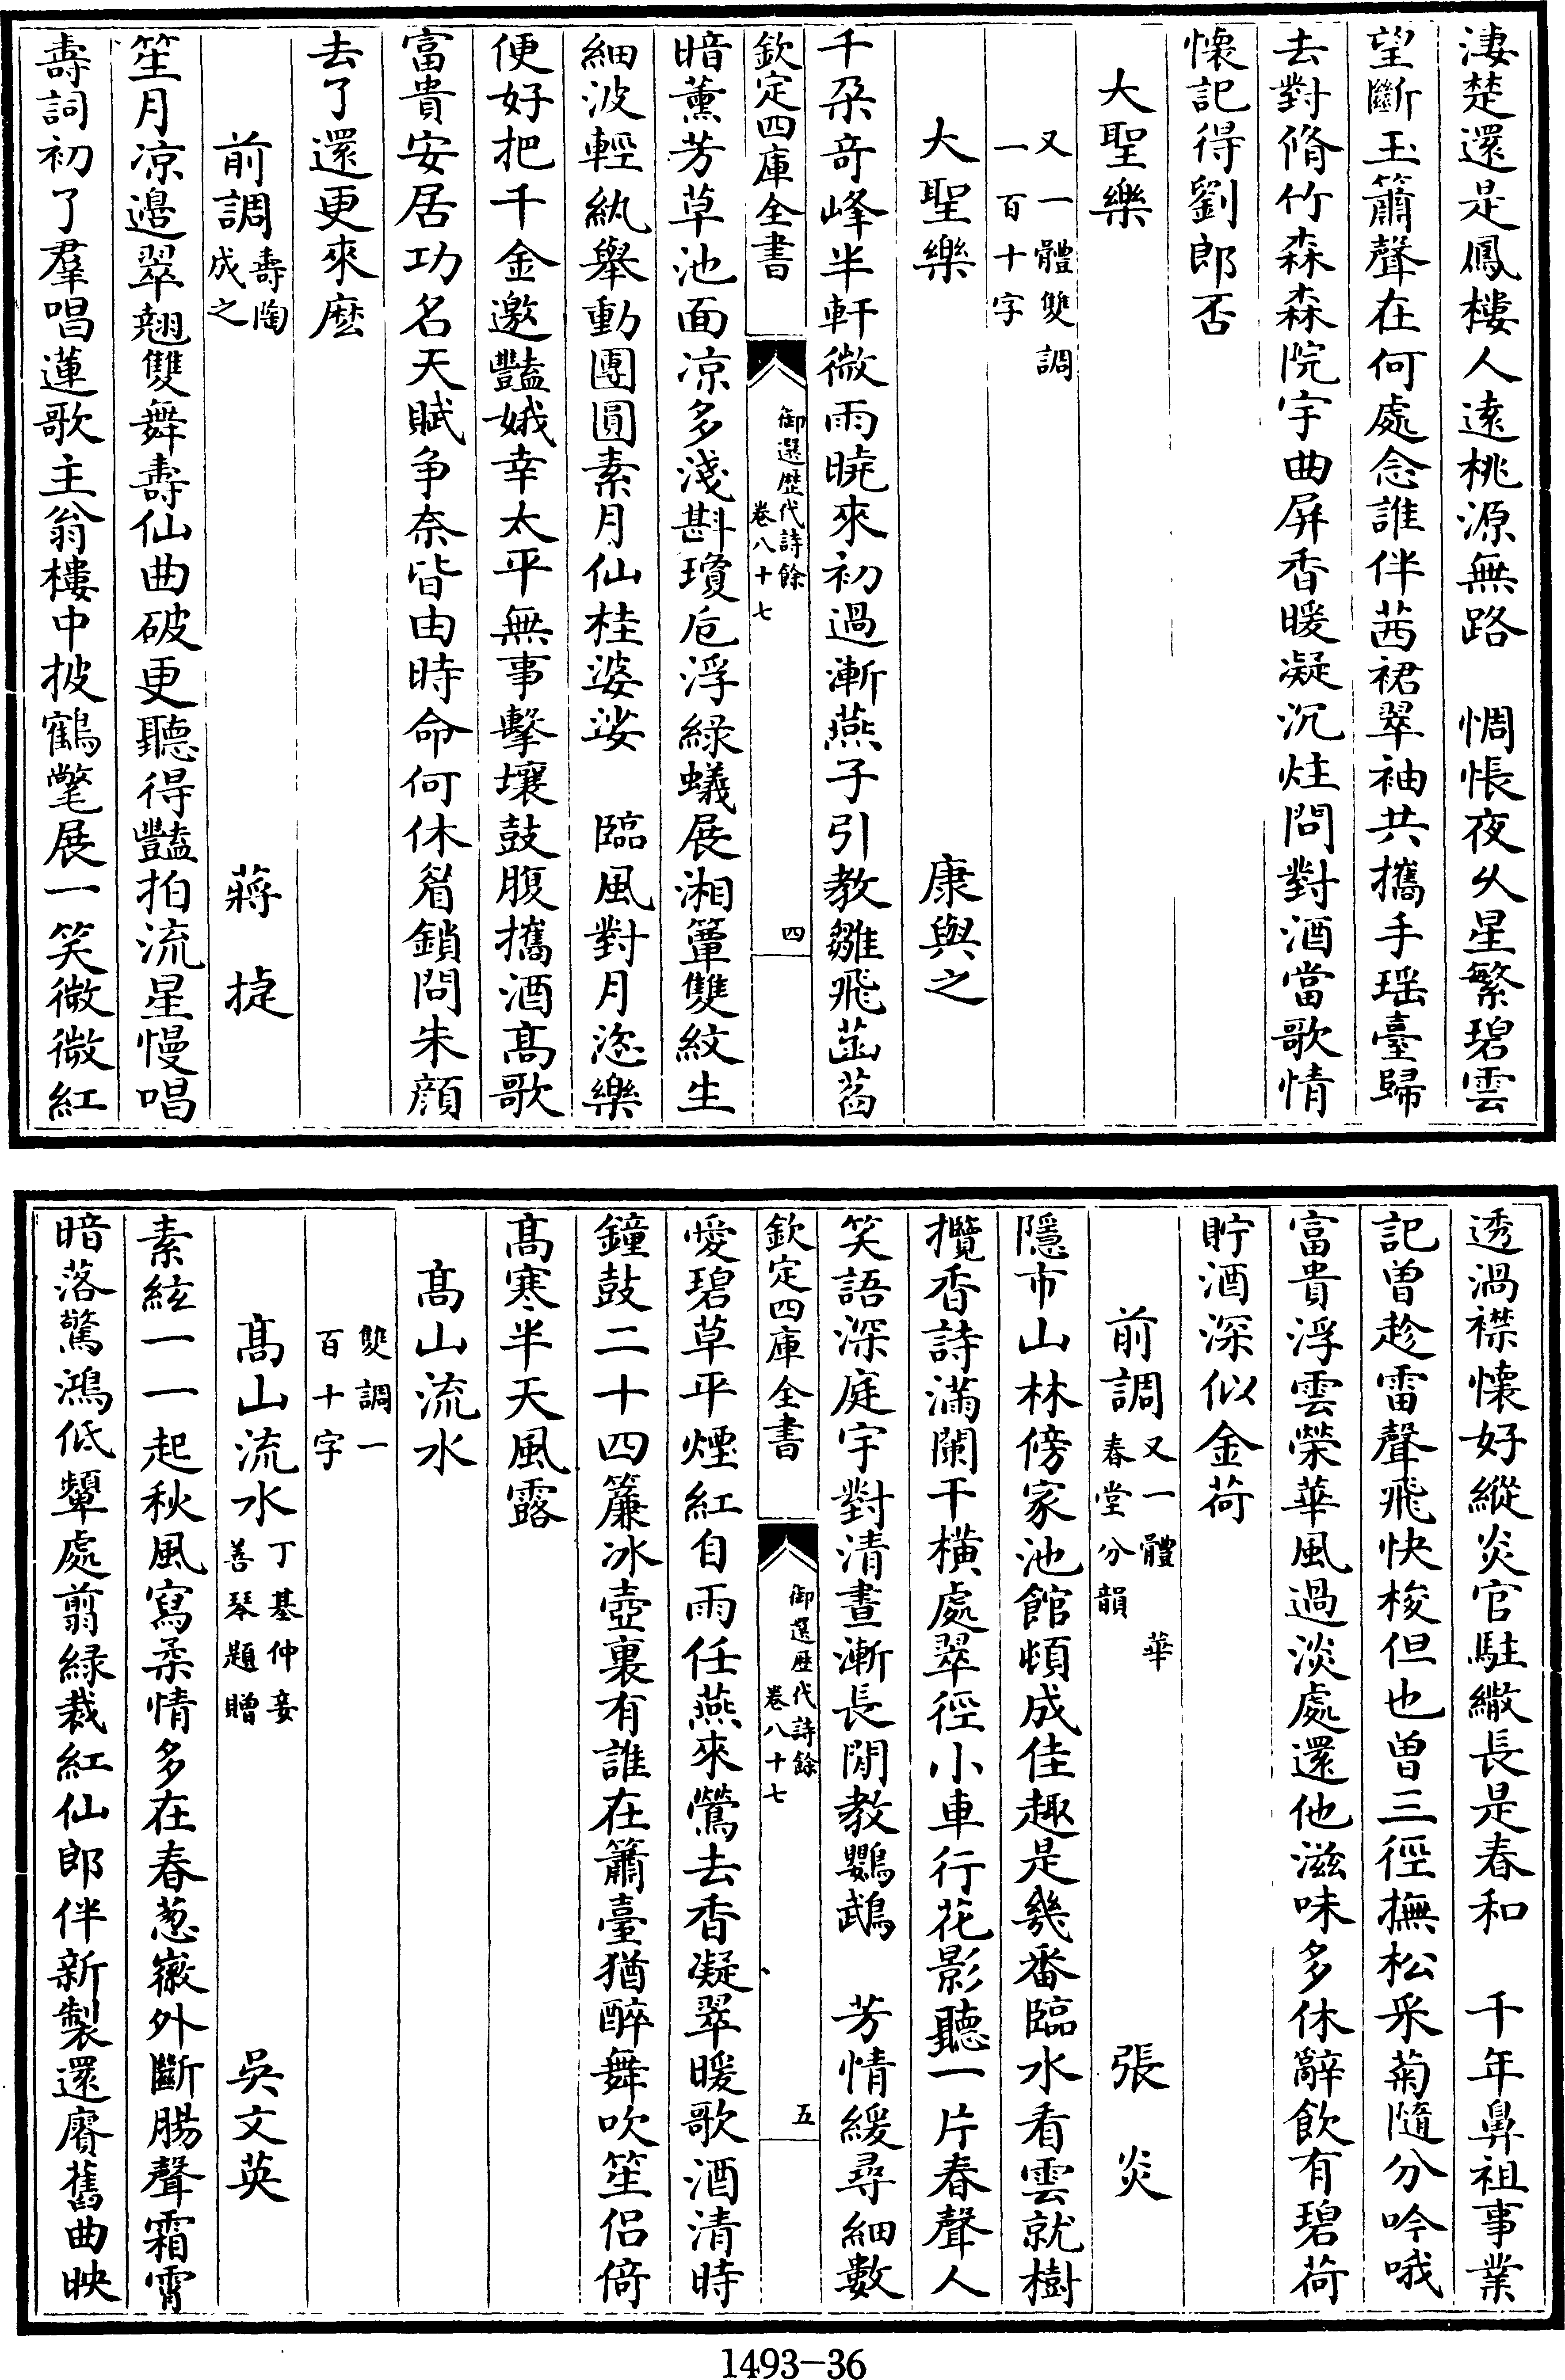 淒楚還是鳳樓人遠桃源無路　惆悵夜久星繁碧雲
望斷玉簫聲在何處念誰伴茜裙翠袖共攜手瑶臺歸
去對脩竹森森院宇曲屏香暖凝沉炷問對酒當歌情
懷記得劉郎否
大聖樂
又一體雙調
一百十字
大聖樂　康與之
千朶奇峰半軒微雨曉來初過漸燕子引教雛飛菡萏
欽定四庫全書
御選歷代詩餘
卷八十七
四
暗薰芳草池面凉多淺斟瓊巵浮綠蟻展湘簟雙紋生
細波輕紈舉動團圓素月仙桂婆娑　臨風對月恣樂
便好把千金邀豔娥幸太平無事擊壤鼓腹攜酒高歌
富貴安居功名天賦争奈皆由時命何休眉鎖問朱顔
去了還更來麽
前調
壽陶
成之
蔣捷
笙月凉邉翠翹雙舞壽仙曲破更聽得豔拍流星慢唱
壽詞初了羣唱蓮歌主翁樓中披鶴氅展一笑微微紅
透渦襟懷好縱炎官駐繖長是春和　千年鼻祖事業
記曽趁雷聲飛快梭但也曽三徑撫松采菊隨分吟哦
富貴浮雲榮華風過淡處還他滋味多休辭飲有碧荷
貯酒深似金荷
前調
又一體　華
春堂分韻
張炎
隱市山林傍家池館頓成佳趣是幾番臨水看雲就樹
攬香詩滿闌干横處翠徑小車行花影聽一片春聲人
笑語深庭宇對清晝漸長閒教鸚鵡　芳情緩尋細數
欽定四庫全書
御選歷代詩餘
卷八十七
五
愛碧草平煙紅自雨任燕來鶯去香凝翠暖歌酒清時
鐘鼓二十四簾冰壺裏有誰在簫臺猶醉舞吹笙侣倚
髙寒半天風露
髙山流水
雙調一
百十字
髙山流水
丁基仲妾
善琴題贈
吳文英
素絃一一起秋風寫柔情多在春葱徽外斷腸聲霜霄
暗落驚鴻低顰處剪緑裁紅仙郎伴新製還賡舊曲映
1493-36